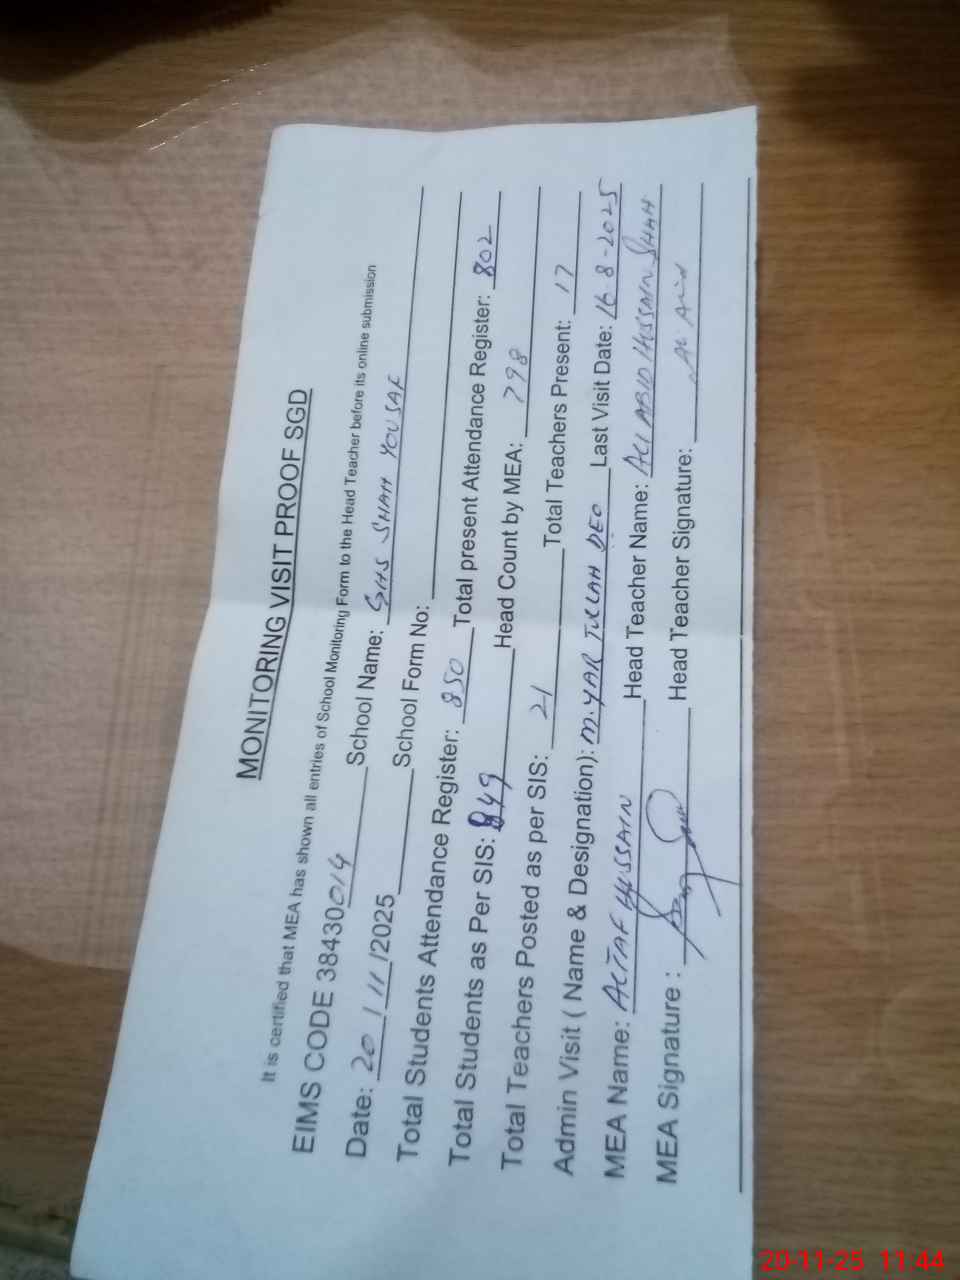 MONITORING VISIT PROOF SGD
It is certified that MEA has shown all entries of School Monitoring Form to the Head Teacher before its online submission
EIMS CODE 38430014 School Name: GHS SHAH YOUSAF
Date: 20/11/2025 School Form No:
Total Students Attendance Register: 850 Total present Attendance Register: 802
Total Students as Per SIS: 849 Head Count by MEA: 798
Total Teachers Posted as per SIS: 21 Total Teachers Present: 17
Admin Visit ( Name & Designation): M. YAR TULLAH DEO Last Visit Date: 16-8-2025
MEA Name: ALTAF HUSSAIN Head Teacher Name: ALI ABID HUSSAIN SHAH
MEA Signature : Head Teacher Signature:
20-11-25 11:44